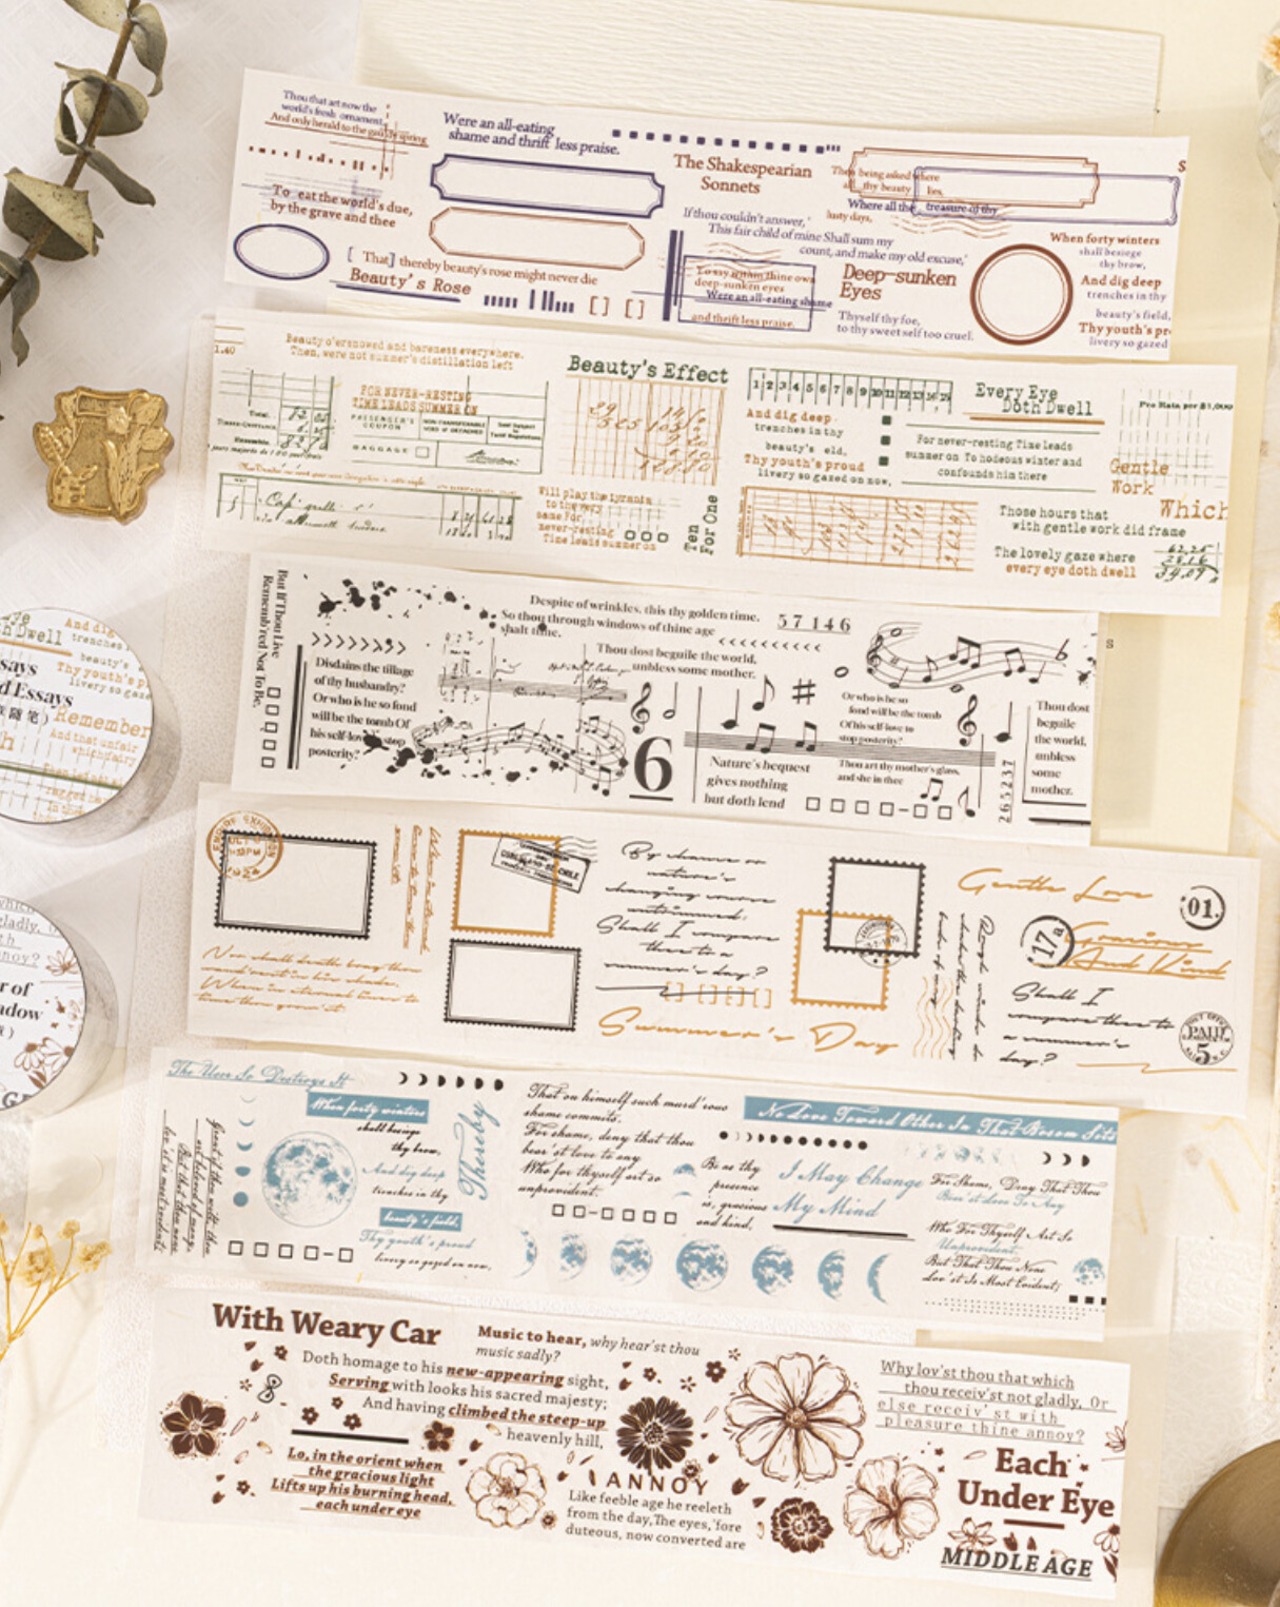 Thou that art now the
world's fresh ornament,
And only herald to the gaudy spring
To eat the world's due,
by the grave and thee
Were an all-eating
shame and thrift less praise.
[ That] thereby beauty's rose might never die
Beauty's Rose
The Shakespearian
Sonnets
If thou couldn't answer,'
This fair child of mine Shall sum my
count, and make my old excuse,'
To say within thine own
deep-sunken eyes
Were an all-eating shame
and thrift less praise.
Then being asked where
all thy beauty lies,
Where all the treasure of thy
lusty days,
Deep-sunken
Eyes
Thyself thy foe,
to thy sweet self too cruel.
When forty winters
shall besiege
thy brow,
And dig deep
trenches in thy
beauty's field,
Thy youth's pr
livery so gazed
S
Beauty o'ersnowed and bareness everywhere.
Then, were not summer's distillation left
1.40
FOR NEVER-RESTING
TIME LEADS SUMMER ON
PASSENGER'S
COUPON
NON-TRANSFERABLE
VOID IF DETACHED
BAGGAGE
Total.
Ensemble.
Beauty's Effect
1 2 3 4 5 6 7 8 9 10 11 12 13 14 15
And dig deep
trenches in thy
beauty's eld,
Thy youth's proud
livery so gazed on now,
Will play the tyrants
to the very
same For
never-resting
Time leads summer on
Ten
For One
Every Eye
Doth Dwell
For never-resting Time leads
summer on To hideous winter and
confounds him there
Pro Rata per $1,000
Gentle
Work
Which
Those hours that
with gentle work did frame
The lovely gaze where
every eye doth dwell
But If Thou Live
Rememb'red Not To Be,
Disdains the tillage
of thy husbandry?
Or who is he so fond
will be the tomb Of
his self-love to stop
posterity?
Despite of wrinkles, this thy golden time.
So thou through windows of thine age
shalt time.
57146
Thou dost beguile the world,
unbless some mother.
6
Or who is he so
fond will be the tomb
Of his self-love to
stop posterity?
Nature's bequest
gives nothing
but doth lend
Thou art thy mother's glass,
and she in thee
265237
Thou dost
beguile
the world,
unbless
some
mother.
S
h Dwell
And dig
trenches
beauty's
Thy youth's p
livery so gaze
says
d Essays
Remember
And that unfair
When in eternal
Nor shall death brag thou
wand'rest in his shade,
When in eternal lines to
time thou grow'st.
By chance or
nature's
changing course
untrimmed;
Shall I compare
thee to a
summer's day?
Summer's Day
Rough winds do
shake the darling
buds of may
Gentle Love
01.
17a
Gracious
And Kind
Shall I
compare thee to
a summer's
day?
PAID
5
which
gladly,
annoy?
r of
adow
The User So Destroys It
When forty winters
shall besiege
thy brow,
And dig deep
trenches in thy
beauty's field,
Thy youth's proud
livery so gazed on now,
Thereby
Grant if thou wilt, thou
art beloved of many,
But that thou none
lov'st is most evident:
That on himself such murd'rous
shame commits.
For shame, deny that thou
bear'st love to any
Who for thyself art so
unprovident.
No Love Toward Other In That Bosom Sits
Be as thy
presence
is, gracious
and kind,
I May Change
My Mind
For Shame, Deny That Thou
Bear'st Love To Any
Who For Thyself Art So
Unprovident.
But That Thou None
Lov'st Is Most Evident;
With Weary Car
Music to hear, why hear'st thou
music sadly?
Doth homage to his new-appearing sight,
Serving with looks his sacred majesty;
And having climbed the steep-up
heavenly hill,
Lo, in the orient when
the gracious light
Lifts up his burning head,
each under eye
ANNOY
Like feeble age he reeleth
from the day,The eyes, 'fore
duteous, now converted are
Why lov'st thou that which
thou receiv'st not gladly, Or
else receiv'st with
pleasure thine annoy?
Each
Under Eye
MIDDLE AGE